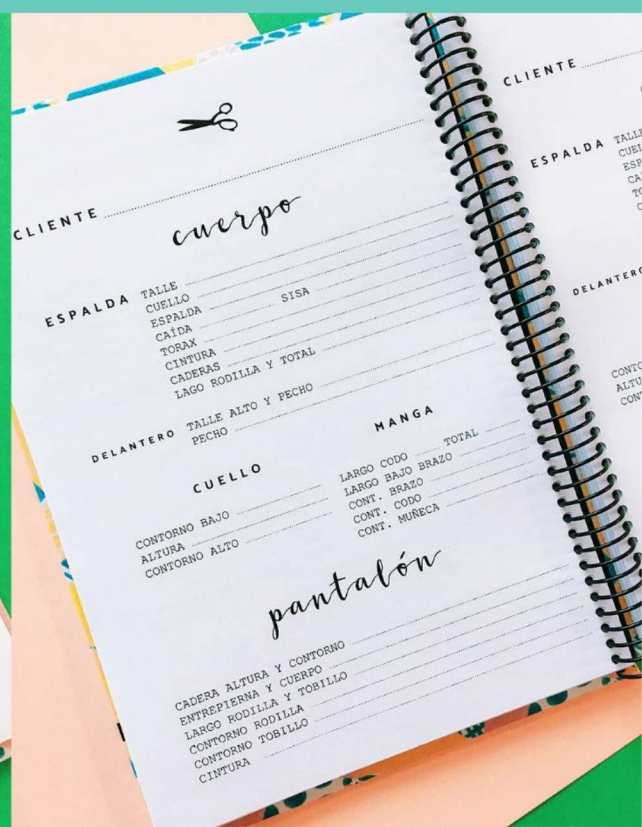 CLIENTE
cuerpo
ESPALDA
TALLE
CUELLO
ESPALDA
CAÍDA SISA
TORAX
CINTURA
CADERAS
LAGO RODILLA Y TOTAL
DELANTERO
TALLE ALTO Y PECHO
PECHO
CUELLO
CONTORNO BAJO
ALTURA
CONTORNO ALTO
MANGA
LARGO CODO TOTAL
LARGO BAJO BRAZO
CONT. BRAZO
CONT. CODO
CONT. MUÑECA
pantalón
CADERA ALTURA Y CONTORNO
ENTREPIERNA Y CUERPO
LARGO RODILLA Y TOBILLO
CONTORNO RODILLA
CONTORNO TOBILLO
CINTURA
CLIENTE
ESPALDA
DELANTERO